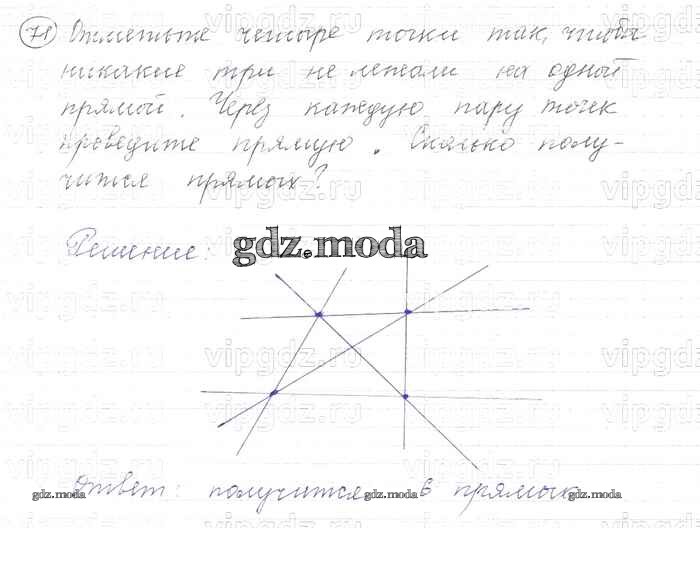 71 Отметьте четыре точки так, чтобы
никакие три не лежали на одной
прямой. Через каждую пару точек
проведите прямую. Сколько полу-
чится прямых?
Решение: gdz.moda
Ответ: получится 6 прямых
gdz.moda gdz.moda gdz.moda
vipgdz.ru vipgdz.ru vipgdz.ru vipgdz.ru